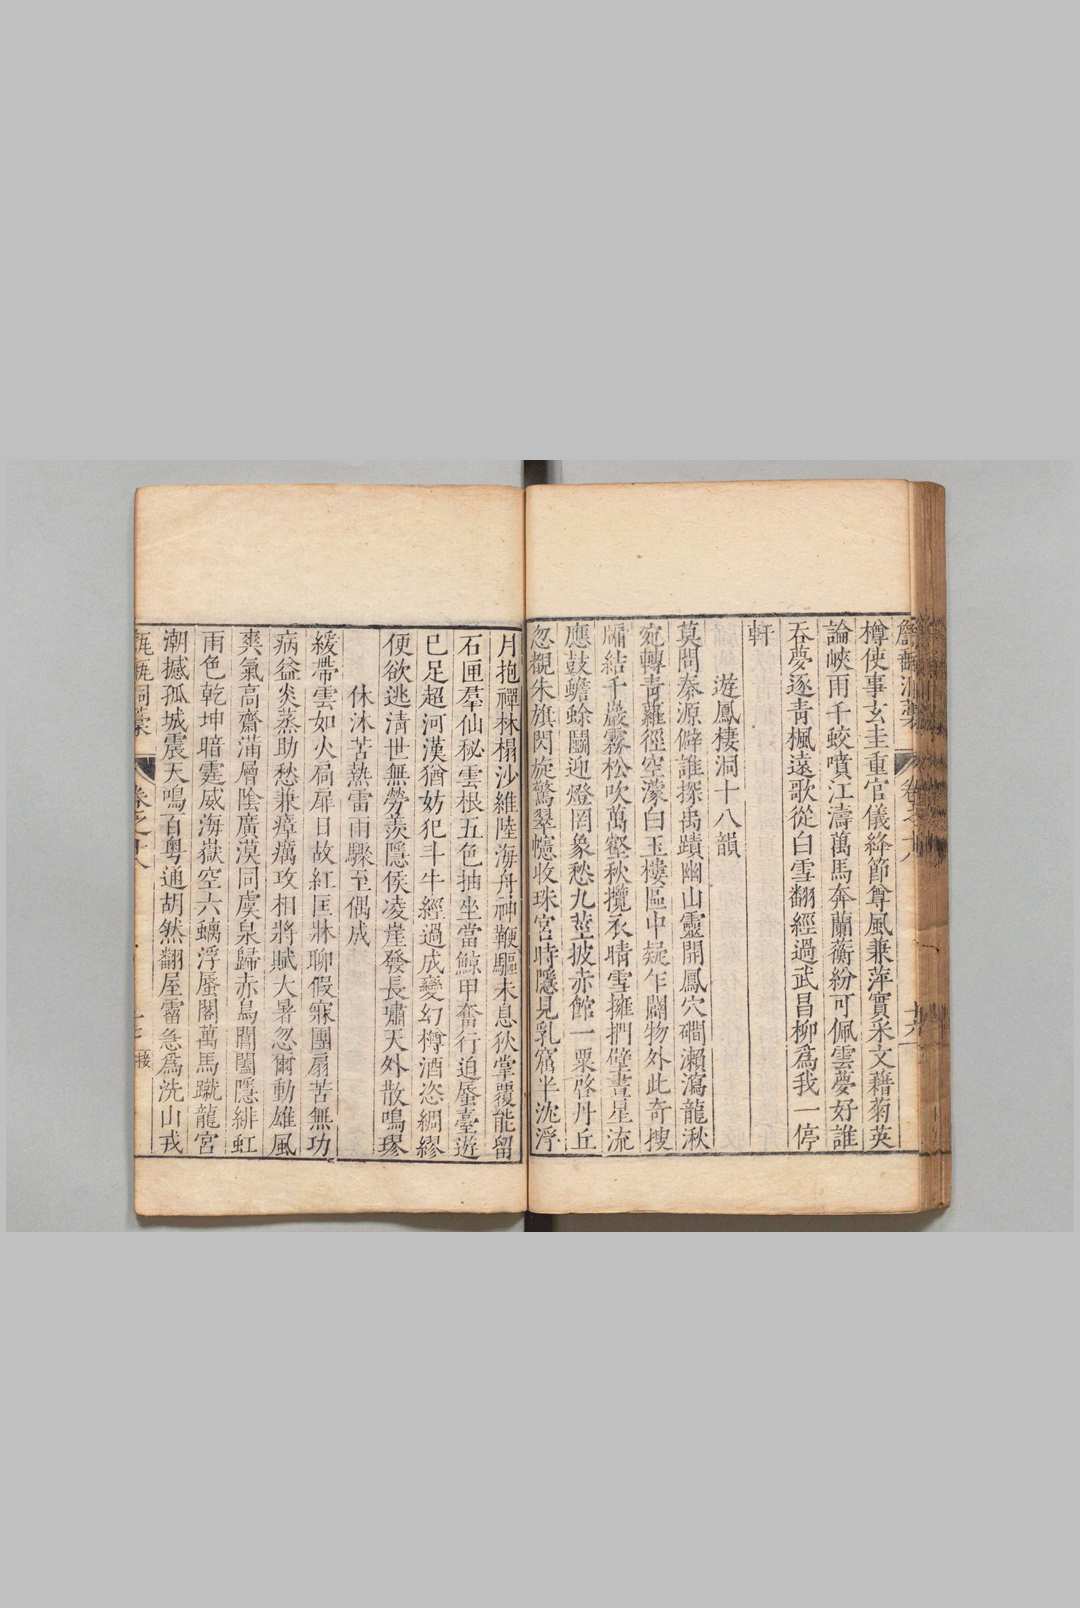 樽使事玄圭重官儀絳節尊風兼萍實采文藉菊英
論峽雨千蛟噴江濤萬馬奔蘭蘅紛可佩雲夢好誰
吞夢逐青楓遠歌從白雪翻經過武昌柳為我一停
軒
遊鳳棲洞十八韻
莫問秦源僻誰探禹蹟幽山靈開鳳穴磵瀨瀉龍湫
宛轉青蘿徑空濛白玉樓區中疑乍闢物外此奇搜
牖結千巖霧松吹萬壑秋攬衣晴雪擁捫壁晝星流
應鼓蟾蜍鬬迎燈罔象愁九莖披赤館一粟啓丹丘
忽覩朱旗閃旋驚翠幰收珠宮時隱見乳窟半沈浮
月抱禪林榻沙維陸海舟神鞭驅未息狄掌覆能留
石匣羣仙秘雲根五色抽坐當鯨甲奮行迫蜃臺遊
已足超河漢猶妨犯斗牛經過成變幻樽酒恣綢繆
便欲逃淸世無勞羨隱侯凌崖發長嘯天外散鳴璆
休沐苦熱雷雨驟至偶成
緩帶雲如火扃扉日故紅匡牀聊假寐團扇苦無功
病益炎蒸助愁兼瘴癘攻相將賦大暑忽爾動雄風
爽氣高齋滿層陰廣漠同虞泉歸赤烏閶闔隱緋虹
雨色乾坤暗霆威海嶽空六螭浮蜃閣萬馬蹴龍宮
潮撼孤城震天鳴百粵通胡然翻屋霤急為洗山戎
甔甀洞藁 卷之十八